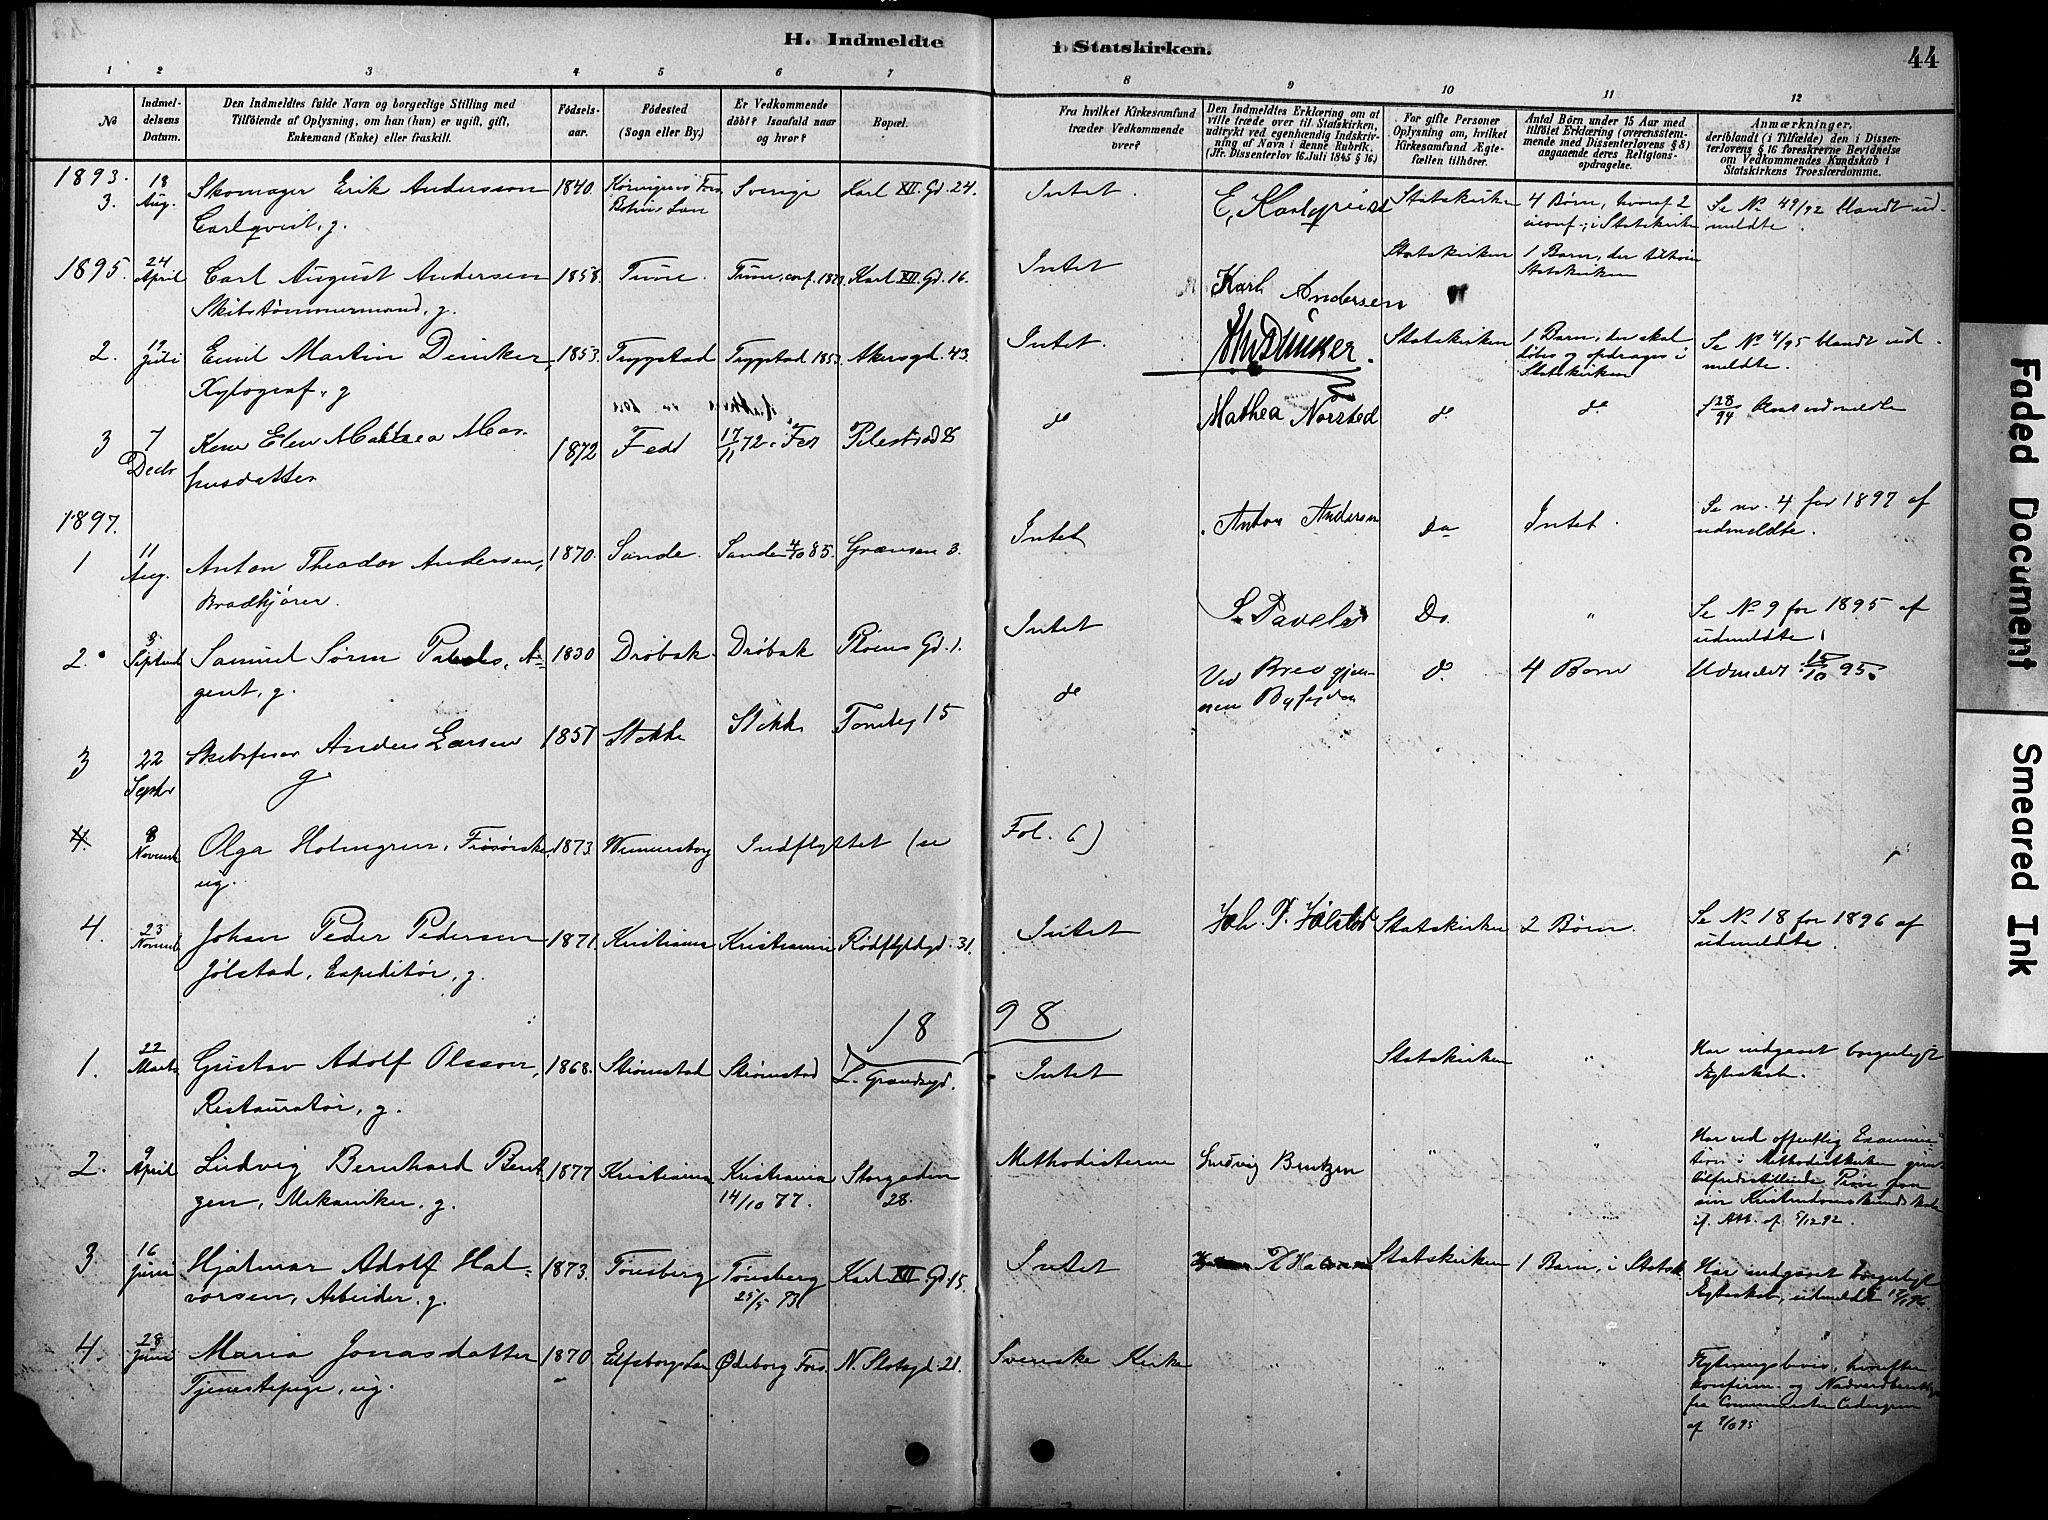 H. Indmeldte i Statskirken. 44
1 2 3 4 5 6 7 8 9 10 11 12
No
Indmeldelsens Datum.
Den Indmeldtes fulde Navn og borgerlige Stilling med
Tilføiende af Oplysning, om han (hun) er ugift, gift,
Enkemand (Enke) eller fraskilt.
Fødselsaar.
Fødested
(Sogn eller By.)
Er Vedkommende
døbt? Isaafald naar
og hvor?
Bopæl.
Fra hvilket Kirkesamfund
træder Vedkommende
over?
Den Indmeldtes Erklæring om at
ville træde over til Statskirken,
udtrykt ved egenhændig Indskrivning
af Navn i denne Rubrik.
(Jfr. Dissenterlov 16 Juli 1845 § 16.)
For gifte Personer
Oplysning om, hvilket
Kirkesamfund Ægtefællen
tilhører.
Antal Børn under 15 Aar med
tilføiet Erklæring (overensstemmende
med Dissenterlovens § 8)
angaaende deres Religionsopdragelse.
Anmærkninger,
deriblandt (i Tilfælde) den i Dissenterlovens
§ 16 foreskrevne Bevidnelse
om Vedkommendes Kundskab i
Statskirkens Troeslærdomme.
1893. 18 Skomager Erik Andersson 1840. Sverige Karl XII. Gd. 24. Intet. Statskirken 4 Børn, hvoraf 2 Se No 49/92 blandt ud-
3. Aug. Carlqvist, g. i Statskirke meldte.
1895. 24 April Carl August Andersen 1858. Tune. Tune, conf. Karl XII. Gd. 16. Intet Karl Andersen Statskirken 1 Barn, der tilhører
Skibstømmermand, g. Statskirken
2. Juli Emil Martin Dunker, 1853. Trygstad Trygstad 1853. Akersgd. 43. Intet. Statskirken 1 Barn, der skal Se No 4/95 blandt ud-
Xylograf, g døbes og opdrages i meldte.
Statskirken
3 7 Decbr 1872 17/11 72 i Fet Mathea Norsted
1897.
1 11 Aug. Anton Theodor Andersen, 1870. Sande. Sande 4/10 85. Grænsen 3. Intet Anton Andersen Do Intet. Se nr. 4 for 1897 af
Brødkjører. udmeldte.
2. Samuel Sørn Paulus, A- 1830 Drøbak Drøbak Pløens Gd. 1. Intet Do. " Se No 9 for 1895 af
gent, g. udmeldte.
3 22 Septbr Anders Larsen 1857 Stokke Stokke 15 Ved Brev gjen- 4 Børn Udmeldt 15/10 95.
g. nem Byfogden
4. 8 Novemb Olga Holmgren, 1873. Indflyttet (se Fol. 6)
ug.
4. 23 Novemb Johan Peder Pedersen 1871. Kristiania Kristiania 31. Intet Joh. P. Jølstad Statskirken 2 Børn. Se No 18 for 1896 af
Jølstad, Expeditør, g. udmeldte.
1898
1. 22 Marts Gustav Adolf Olsson, 1868. Strømstad Strømstad L. Grændsegd. Intet Statskirken " Har indgaaet borgerligt
Restauratør, g. Ægteskab.
2. 9 April Ludvig Bernhard Bent- 1877 Kristiania Kristiania Storgaden Methodisterne Ludvig Bentzen " " Har ved offentlig Examina-
zen, Mekaniker, g. 14/10 77. 28. tion i Methodistkirken
tilfredsstillende Prøve paa
sin Kristendomskundskab
if. Att. af 5/12 92.
3 16 Juni Hjalmar Adolf Hal- 1873. Tønsberg Tønsberg Karl XII Gd. 15. Intet Statskirken 1 Barn, i Statsk. Har indgaaet borgerligt
vorsen, Arbeider, g. 25/5 73 Ægteskab, udmeldt
4. 28 Juni Maria Jonasdatter 1870 Elfsborgs Len Ødeborg Fors. N. Slotsgd. 21. Svenske Kirke " " Flytningsbevis,
Tjenestepige, ug.
Faded Document
Smeared Ink